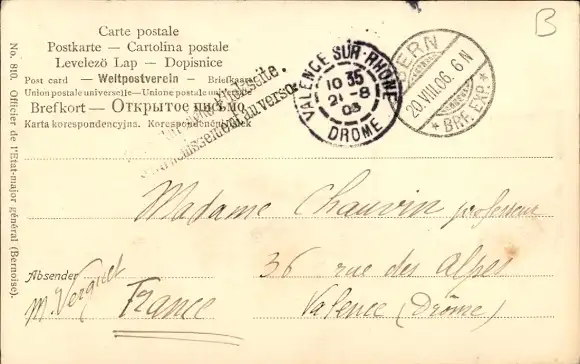 Carte postale
Postkarte — Cartolina postale
Levelezö Lap — Dopisnice
Post card — Weltpostverein — Briefkaart
Union postale universelle — Unione postale
Brefkort — Открытое письмо
Karta korespondencyjna. Korespondenční lístek
No. 810. Officier de l'Etat-major général (Bernoise).
VALENCE-SUR-RHONE
10 35
21 - 8
DRÔME
BERN
20.VIII.06. 6 N
* BRF. EXP. *
B
Madame Chauvin professeur
36 rue des Alpes
Valence (Drôme)
France
Absender
M. Vergnet